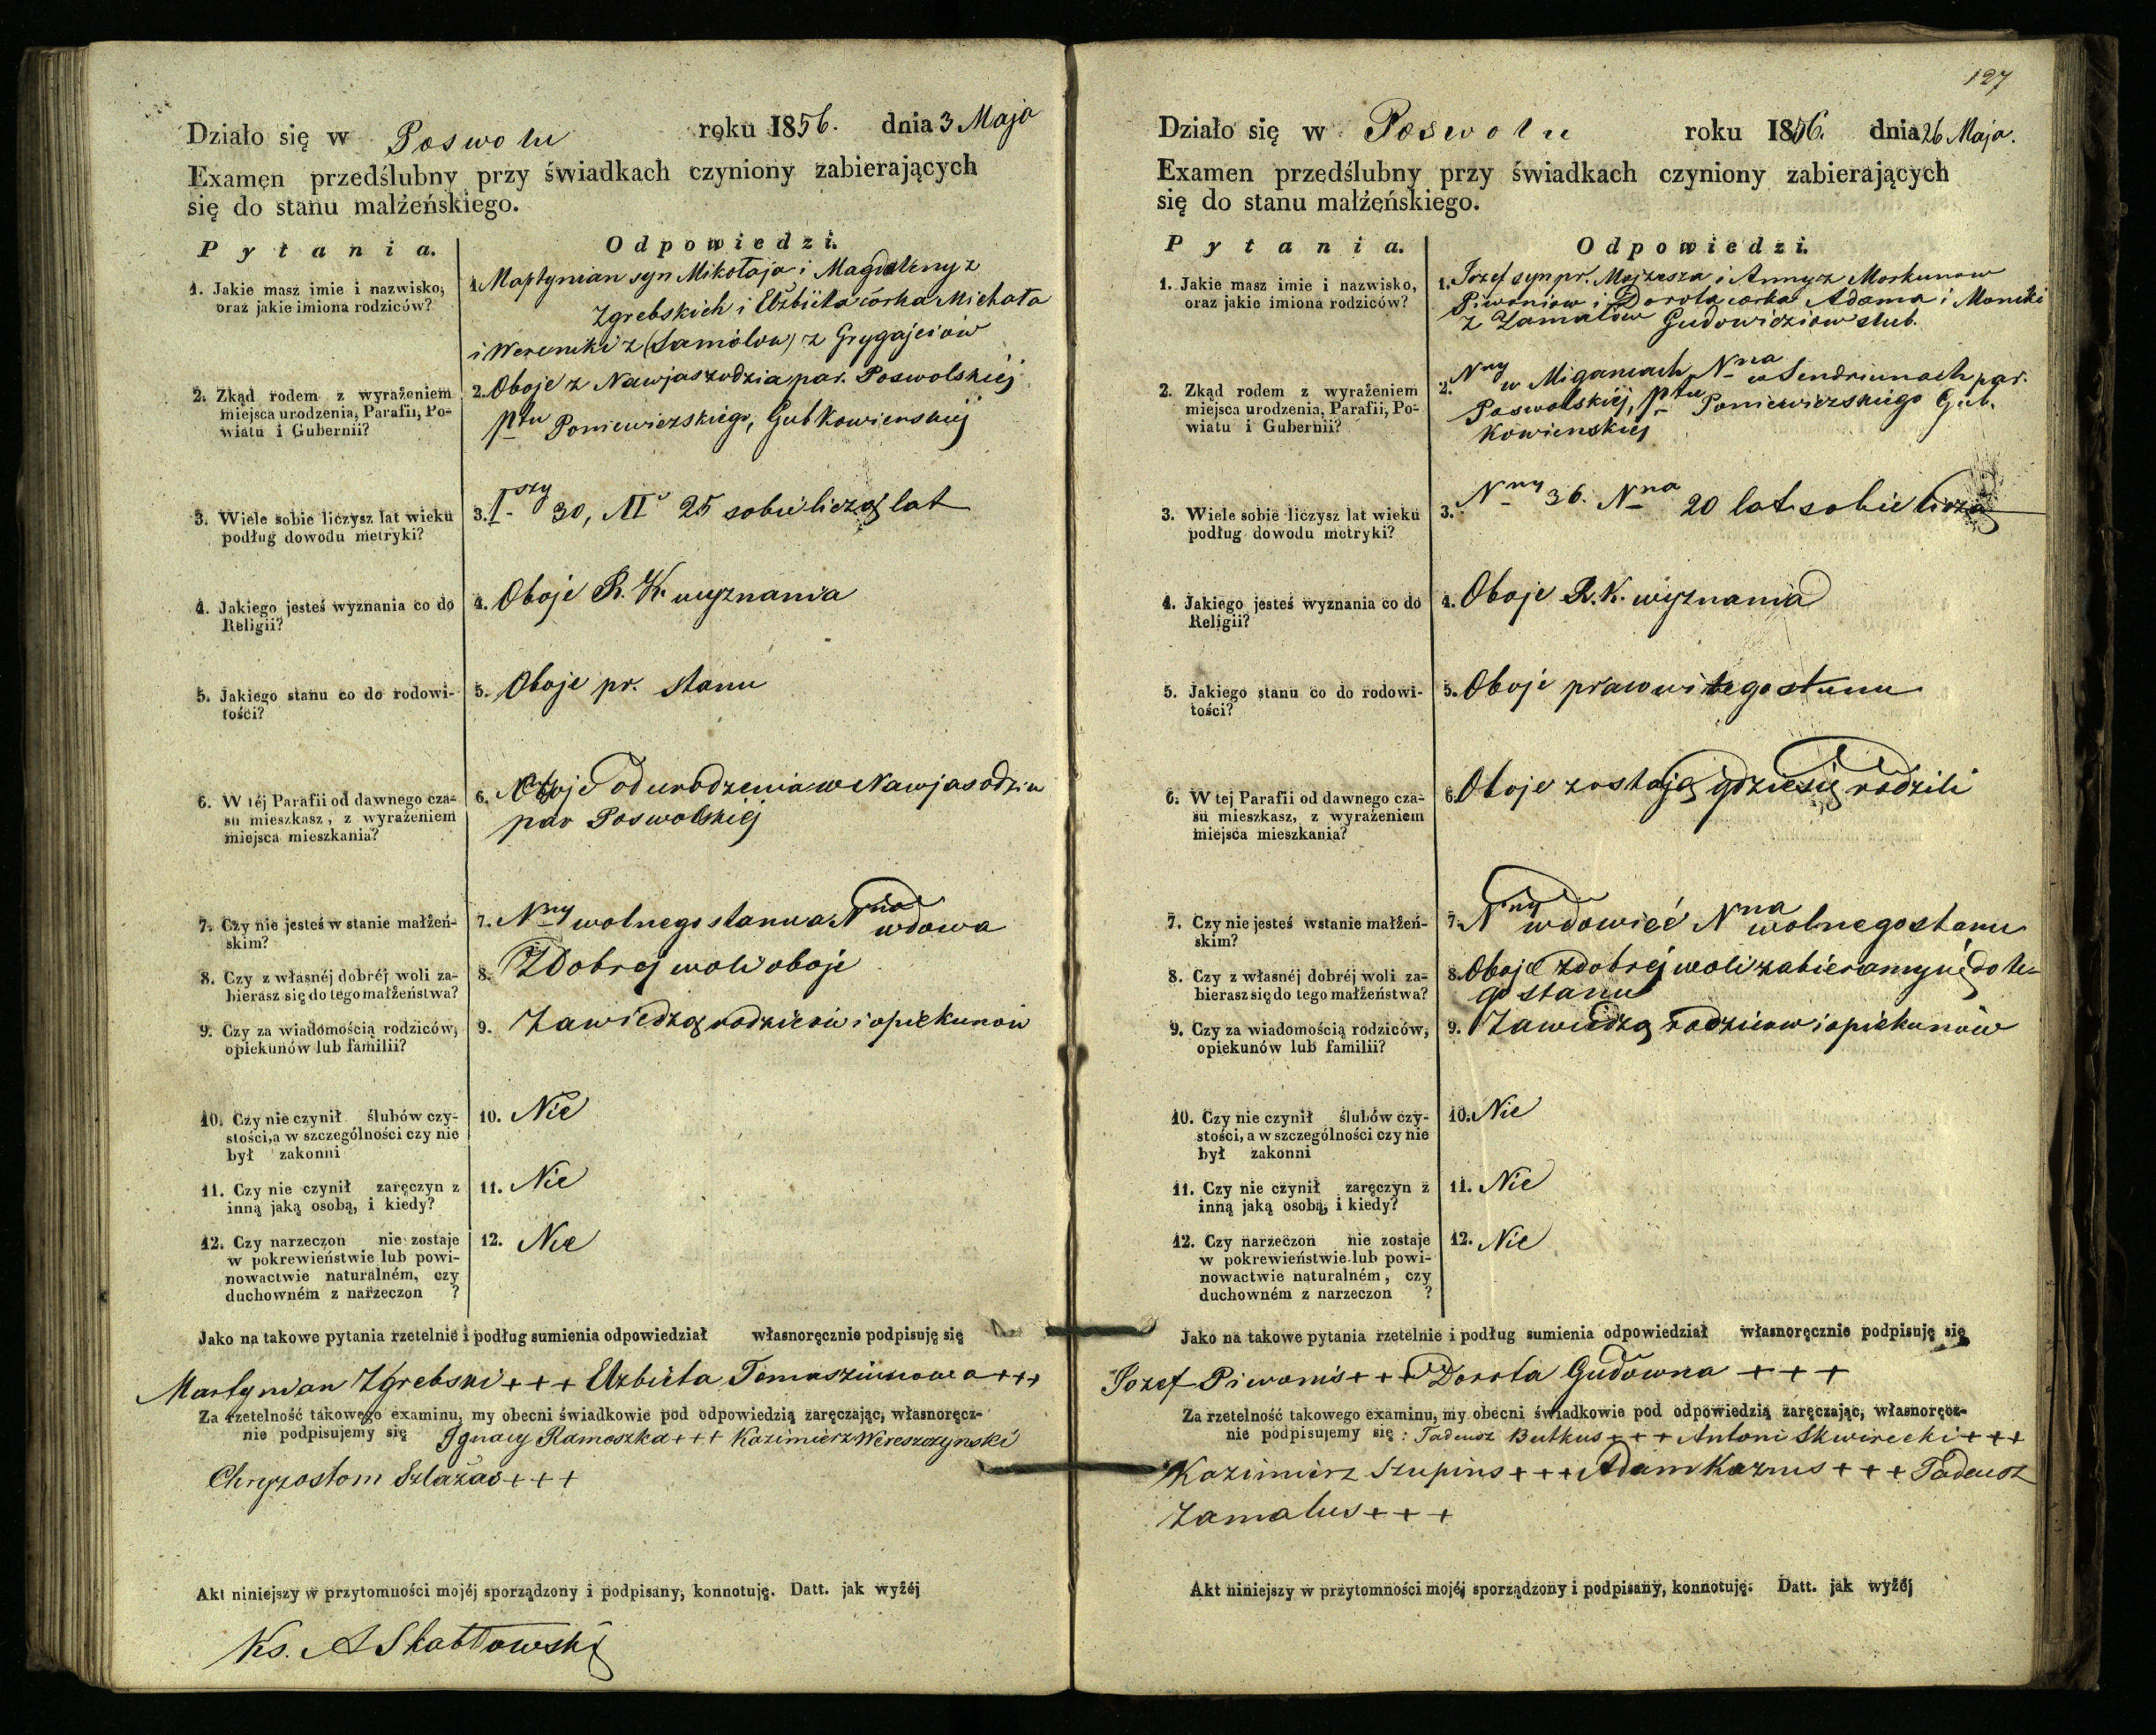 Działo się w Poswolu roku 1856. dnia 3 Maja
Examen przedślubny przy świadkach czyniony zabierających
się do stanu małżeńskiego.
Pytania. Odpowiedzi.
1. Jakie masz imie i nazwisko, oraz jakie imiona rodziców?
1. Martynian syn Mikołaja i Magdaleny z
Zgrebskich i Elżbieta córka Michała
i Weroniki z (Samólow) z Grygajciow
2. Zkąd rodem z wyrażeniem
miejsca urodzenia, Parafii, Po-
wiatu i Gubernii?
2. Oboje z Nawjaszodzia par. Poswolskiej
ptu Poniewiezskiego, Gub Kowienskiej
3. Wiele sobie liczysz lat wieku
podług dowodu metryki?
3. I-szy 30, II 25 sobie liczą lat
4. Jakiego jesteś wyznania co do
Religii?
4. Oboje R. K. wyznania
5. Jakiego stanu co do rodowi-
tości?
5. Oboje pr. stanu
6. W téj Parafii od dawnego cza-
su mieszkasz, z wyrażeniem
miejsca mieszkania?
6. Oboje od urodzenia w Nawjasodziu
par Poswolskiej
7. Czy nie jesteś w stanie małżeń-
skim?
7. Nny wolnego stanu a Nna wdowa
8. Czy z własnéj dobréj woli za-
bierasz się do tego małżeństwa?
8. Z Dobrej woli oboje
9. Czy za wiadomością rodziców,
opiekunów lub familii?
9. Za wiedzą rodzicow i opiekunow
10. Czy nie czynił ślubów czy-
stości, a w szczególności czy nie
był zakonni
10. Nie
11. Czy nie czynił zaręczyn z
inną jaką osobą, i kiedy?
11. Nie
12. Czy narzeczon nie zostaje
w pokrewieństwie lub powi-
nowactwie naturalném, czy
duchowném z narzeczon ?
12. Nie
Jako na takowe pytania rzetelnie i podług sumienia odpowiedział własnoręcznie podpisuję się
Martynian Zgrebski +++ Elzbieta Tomaszunowa +++
Za rzetelność takowego examinu, my obecni świadkowie pod odpowiedzią zaręczając, własnoręcz-
nie podpisujemy się Ignacy Ramoszka +++ Kazimierz Wereszczynski
Chryzostom Szlažas +++
Akt niniejszy w przytomności mojéj sporządzony i podpisany, konnotuję. Datt. jak wyżéj
Ks. A Skabłowski
127
Działo się w Poswolu roku 1856. dnia 26 Maja.
Examen przedślubny przy świadkach czyniony zabierających
się do stanu małżeńskiego.
Pytania. Odpowiedzi.
1. Jakie masz imie i nazwisko,
oraz jakie imiona rodziców?
1. Jozef syn pr. Mojzesza i Anny z Morkunow
Piwoniow i Dorota corka Adama i Moniki
z Zamalow Gudowicziow slub.
2. Zkąd rodem z wyrażeniem
miejsca urodzenia, Parafii, Po-
wiatu i Gubernii?
2. Nny w Miganciach Nna w Sendriunach par.
Poswolskiej, ptu Poniewiezskiego Gub.
Kowienskiej
3. Wiele sobie liczysz lat wieku
podług dowodu metryki?
3. Nny 36. Nna 20 lat sobie liczą
4. Jakiego jesteś wyznania co do
Religii?
4. Oboje R. K. wyznania
5. Jakiego stanu co do rodowi-
tości?
5. Oboje prawowitego stanu
6. W tej Parafii od dawnego cza-
su mieszkasz, z wyrażeniem
miejsca mieszkania?
6. Oboje zostają gdzie się rodzili
7. Czy nie jesteś wstanie małżeń-
skim?
7. Nny wdowieć Nna wolnego stanu
8. Czy z własnéj dobréj woli za-
bierasz się do tego małżeństwa?
8. Oboje z dobrej woli zabieramy się do te-
go stanu
9. Czy za wiadomością rodziców,
opiekunów lub familii?
9. Za wiedzą rodzicow i opiekunów
10. Czy nie czynił ślubów czy-
stości, a w szczególności czy nie
był zakonni
10. Nie
11. Czy nie czynił zaręczyn z
inną jaką osobą, i kiedy?
11. Nie
12. Czy narzeczon nie zostaje
w pokrewieństwie lub powi-
nowactwie naturalném, czy
duchowném z narzeczon ?
12. Nie
Jako na takowe pytania rzetelnie i podług sumienia odpowiedział własnoręcznie podpisuję się
Jozef Piwonis +++ Dorota Gudowna +++
Za rzetelność takowego examinu, my obecni świadkowie pod odpowiedzią zaręczając, własnoręcz-
nie podpisujemy się: Tadeusz Butkus +++ Antoni Skwirecki +++
Kazimierz Szupins +++ Adam Kaznus +++ Tadeusz
Zamalus +++
Akt niniejszy w przytomności mojéj sporządzony i podpisany, konnotuję. Datt. jak wyżéj